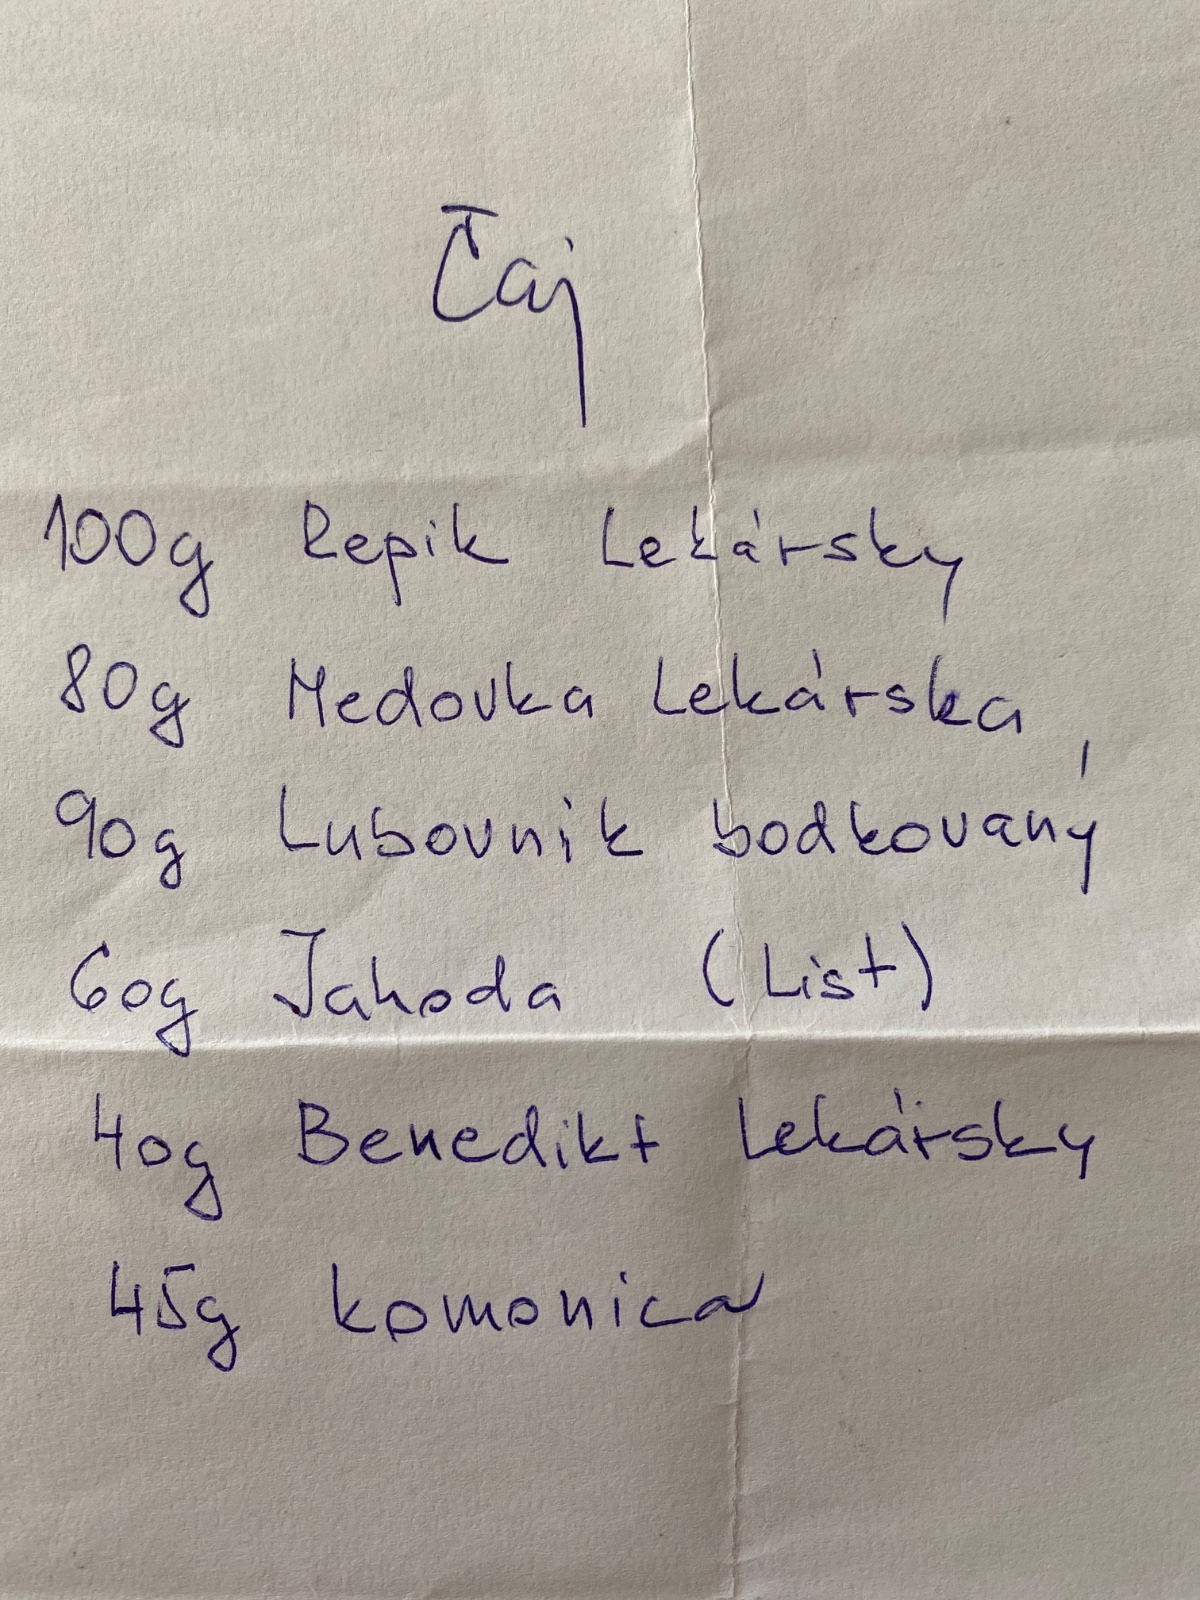 Čaj
100g Repik Lekársky
80g Medovka Lekárska
90g Lubovnik bodkovaný
60g Jahoda (List)
40g Benedikt Lekársky
45g komonica